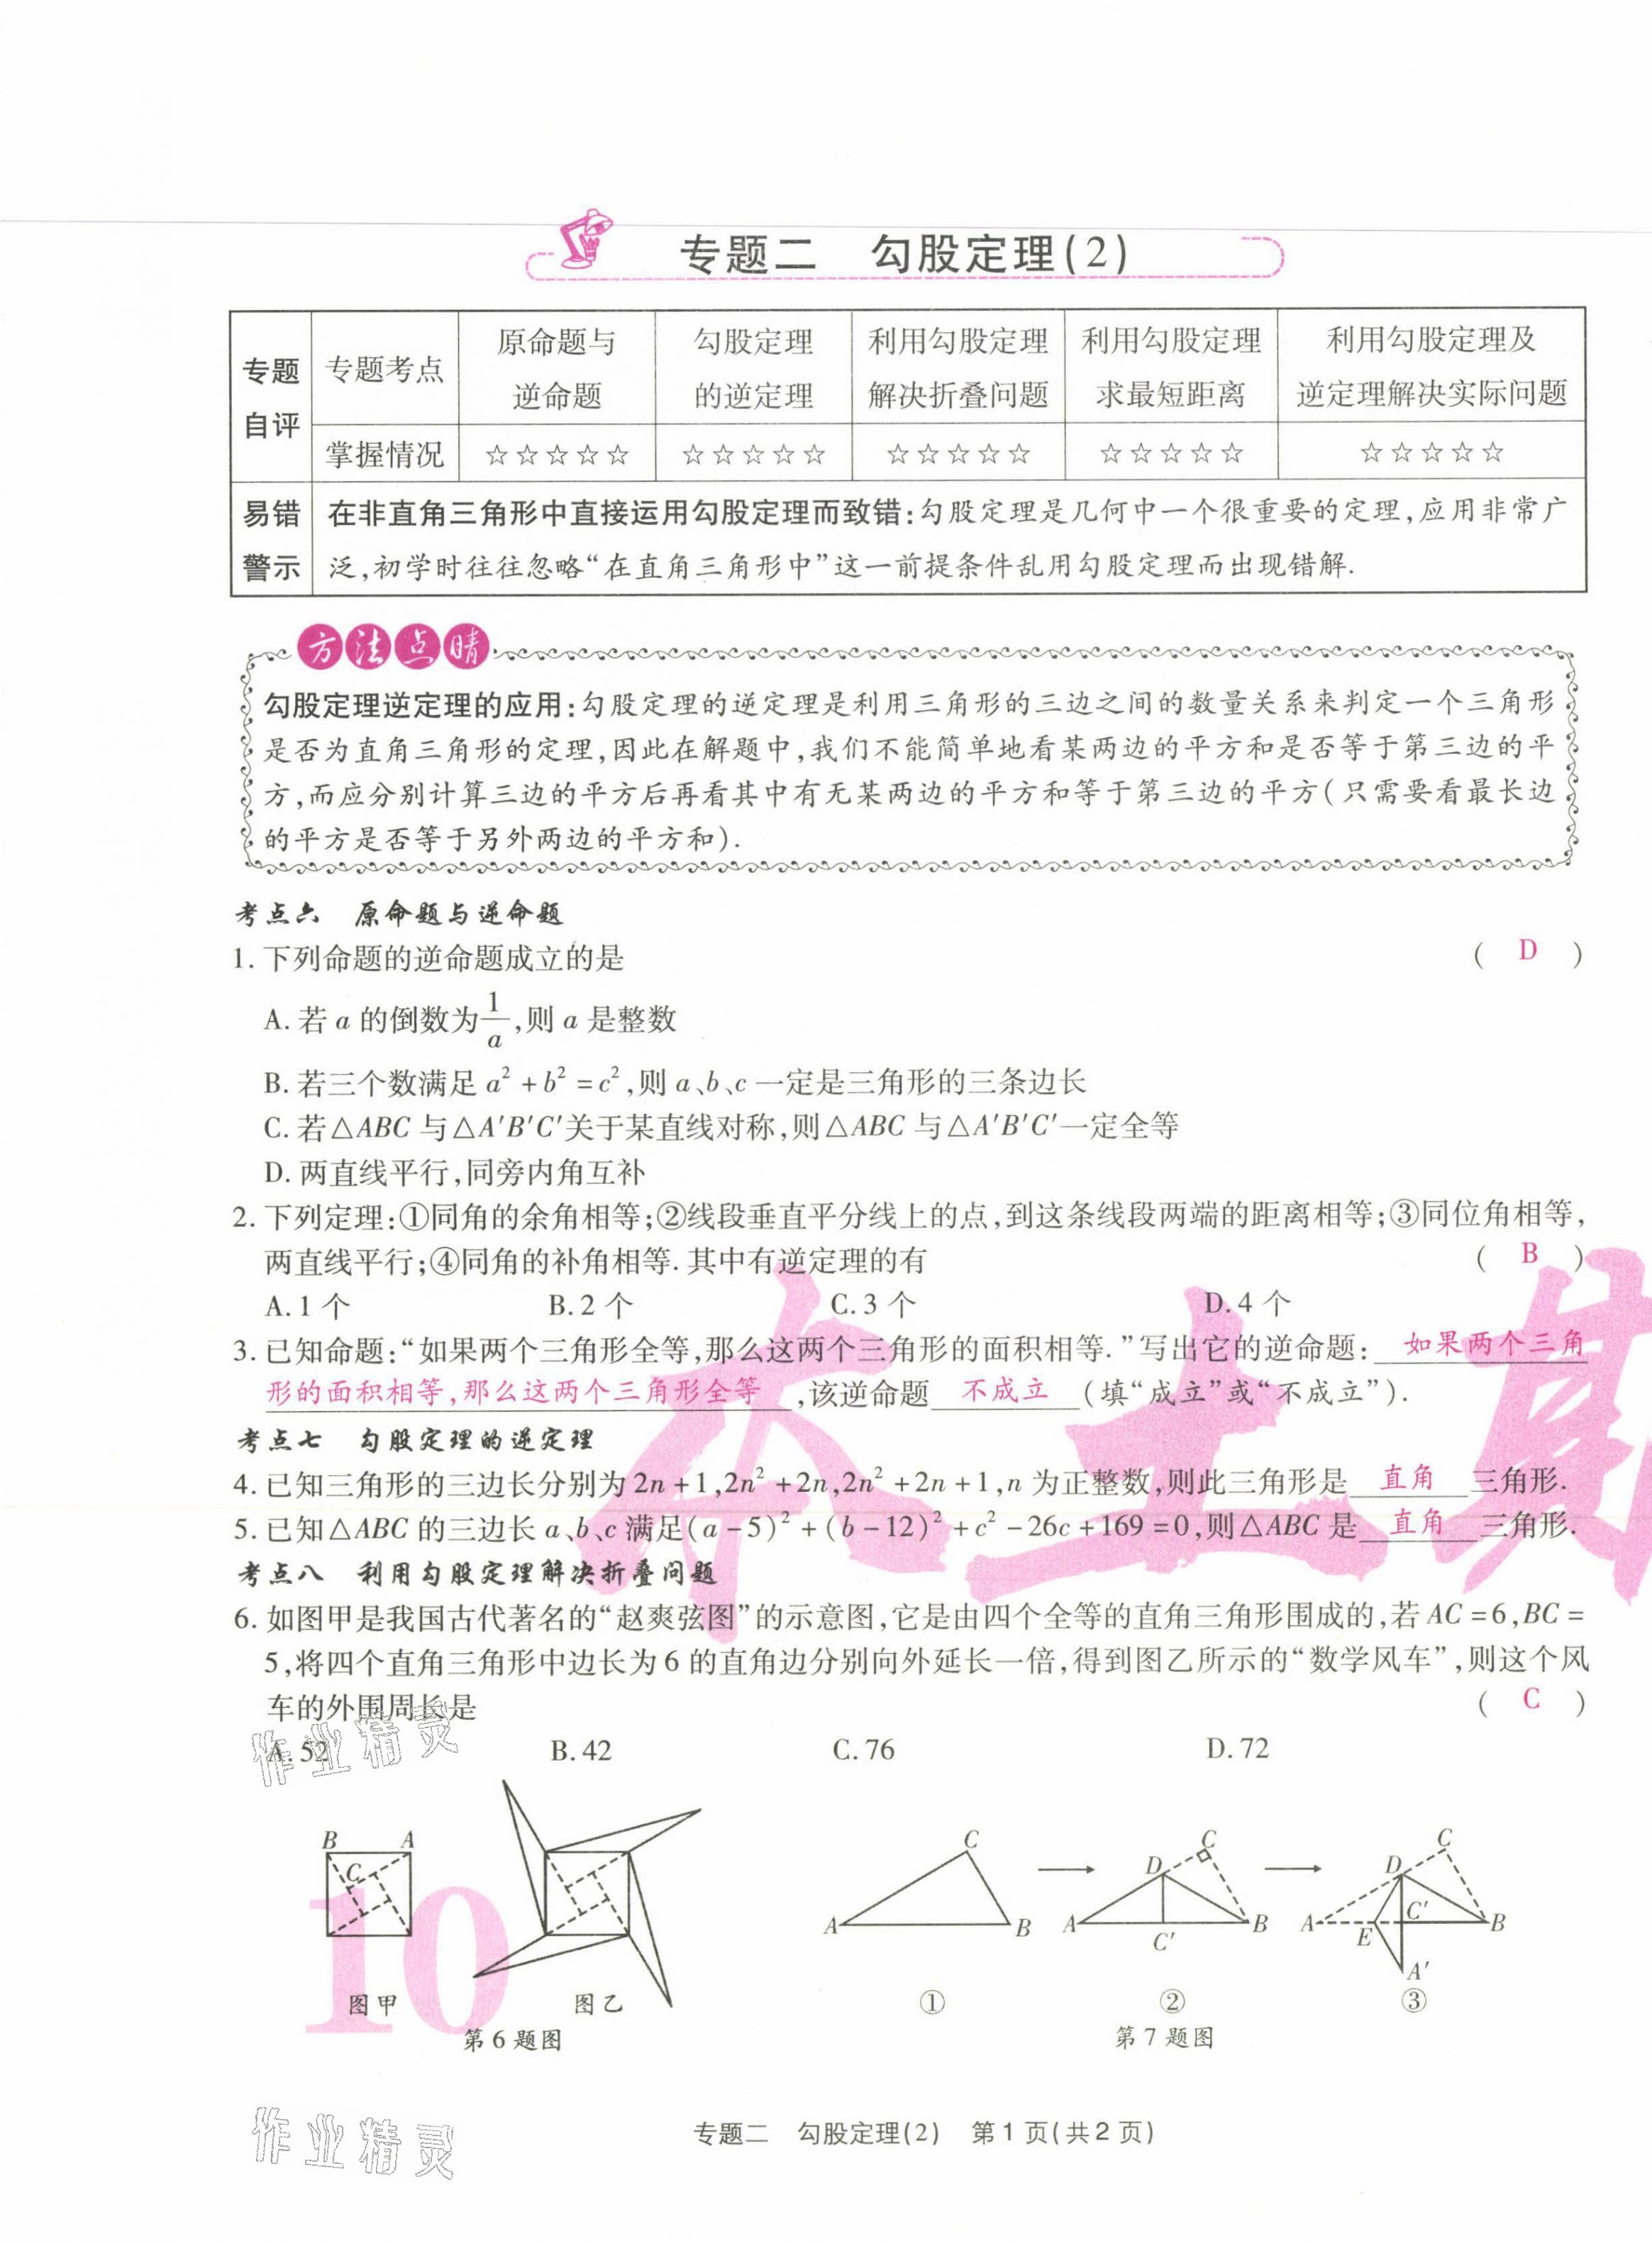 专题二 勾股定理(2)
专题自评 专题考点 原命题与逆命题 勾股定理的逆定理 利用勾股定理解决折叠问题 利用勾股定理求最短距离 利用勾股定理及逆定理解决实际问题
掌握情况 ☆☆☆☆☆ ☆☆☆☆☆ ☆☆☆☆☆ ☆☆☆☆☆ ☆☆☆☆☆
易错警示 在非直角三角形中直接运用勾股定理而致错:勾股定理是几何中一个很重要的定理,应用非常广
泛,初学时往往忽略“在直角三角形中”这一前提条件乱用勾股定理而出现错解.
方法点睛
勾股定理逆定理的应用:勾股定理的逆定理是利用三角形的三边之间的数量关系来判定一个三角形
是否为直角三角形的定理,因此在解题中,我们不能简单地看某两边的平方和是否等于第三边的平
方,而应分别计算三边的平方后再看其中有无某两边的平方和等于第三边的平方(只需要看最长边
的平方是否等于另外两边的平方和).
考点六 原命题与逆命题
1. 下列命题的逆命题成立的是 ( D )
A. 若 a 的倒数为1/a,则 a 是整数
B. 若三个数满足 a²+b²=c²,则 a、b、c 一定是三角形的三条边长
C. 若△ABC 与△A'B'C'关于某直线对称,则△ABC 与△A'B'C'一定全等
D. 两直线平行,同旁内角互补
2. 下列定理:①同角的余角相等;②线段垂直平分线上的点,到这条线段两端的距离相等;③同位角相等,
两直线平行;④同角的补角相等. 其中有逆定理的有 ( B )
A. 1 个 B. 2 个 C. 3 个 D. 4 个
3. 已知命题:“如果两个三角形全等,那么这两个三角形的面积相等. ”写出它的逆命题: 如果两个三角
形的面积相等,那么这两个三角形全等 ,该逆命题 不成立 (填“成立”或“不成立”).
考点七 勾股定理的逆定理
4. 已知三角形的三边长分别为 2n+1,2n²+2n,2n²+2n+1,n 为正整数,则此三角形是 直角 三角形.
5. 已知△ABC 的三边长 a、b、c 满足(a-5)²+(b-12)²+c²-26c+169=0,则△ABC 是 直角 三角形.
考点八 利用勾股定理解决折叠问题
6. 如图甲是我国古代著名的“赵爽弦图”的示意图,它是由四个全等的直角三角形围成的,若 AC=6,BC=
5,将四个直角三角形中边长为 6 的直角边分别向外延长一倍,得到图乙所示的“数学风车”,则这个风
车的外围周长是 ( C )
A. 52 B. 42 C. 76 D. 72
作业精灵
B A C
图甲 图乙
第 6 题图
A B C
①
A B C D C'
②
A B C D E C' A'
③
第 7 题图
本土期
10
作业精灵
专题二 勾股定理(2) 第 1 页(共 2 页)